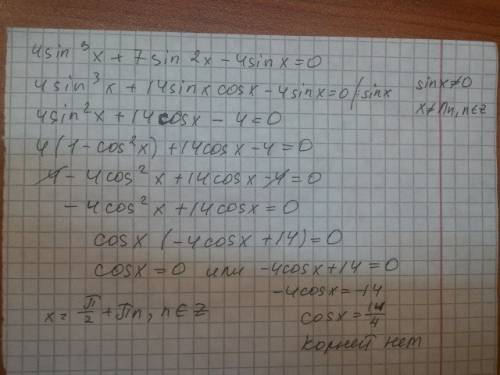 4sin³x + 7sin2x - 4sinx = 0
4sin³x + 14sinx cosx - 4sinx = 0 /: sinx
sinx ≠ 0
x ≠ πn, n∈Z
4sin²x + 14cosx - 4 = 0
4(1 - cos²x) + 14cosx - 4 = 0
4 - 4cos²x + 14cosx - 4 = 0
- 4cos²x + 14cosx = 0
cosx (-4cosx + 14) = 0
cosx = 0 или -4cosx + 14 = 0
-4cosx = -14
x = π/2 + πn, n∈Z
cosx = 14/4
корней нет